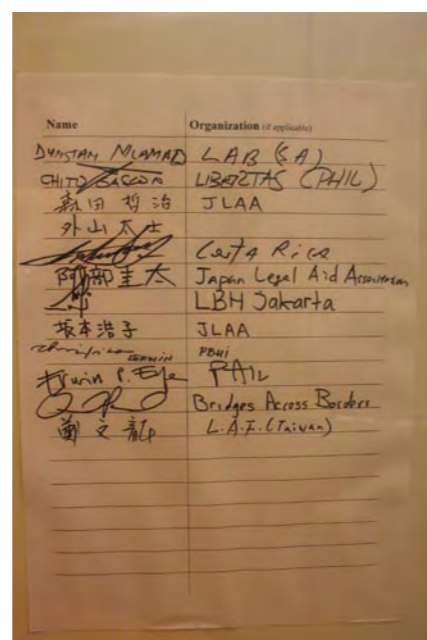 Name Organization (if applicable)
DUNSTAN MLAMBO LAB (SA)
CHITO GASCON LIBERTAS (PHIL)
森田 哲治 JLAA
外山 太士
Costa Rica
阿部圭太 Japan Legal Aid Association
LBH Jakarta
坂本浩子 JLAA
PBHI
Erwin P. PAIL
Bridges Across Borders
鄭文龍 L.A.F. (Taiwan)